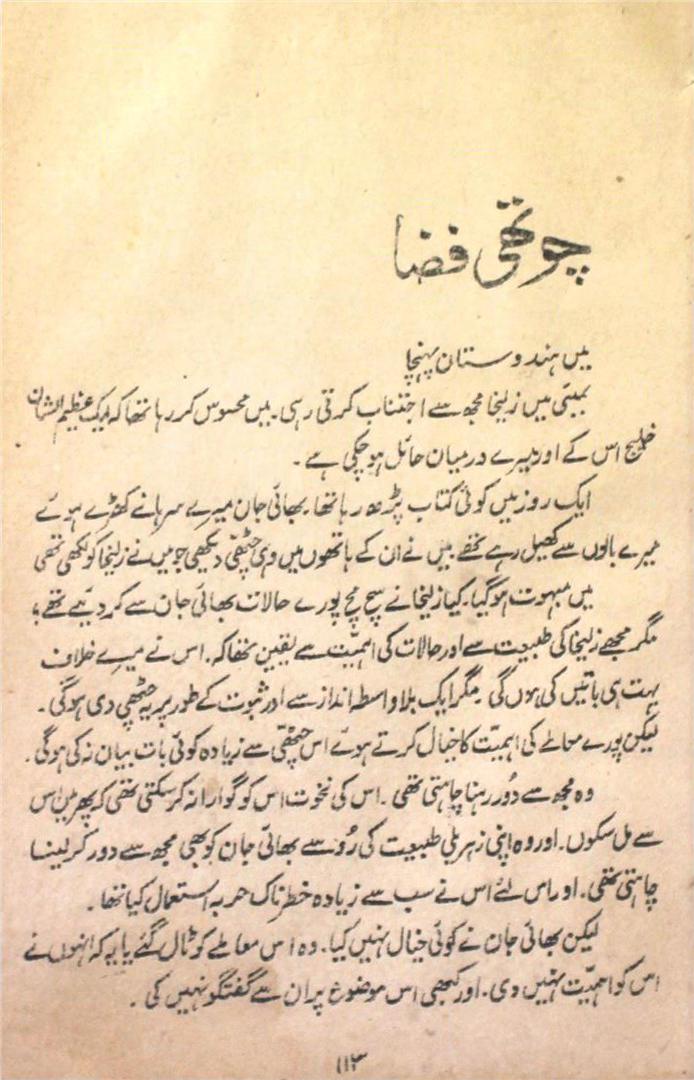 چوتھی فضا
میں ہندوستان پہنچا
بمبئی میں زلیخا مجھ سے اجتناب کرتی رہی۔ میں محسوس کر رہا تھا کہ ایک عظیم الشان
خلیج اس کے اور میرے درمیان حائل ہو چکی ہے ۔
ایک روز میں کوئی کتاب پڑھ رہا تھا۔ بھائی جان میرے سرہانے کھڑے ہوئے
میرے بالوں سے کھیل رہے تھے میں نے ان کے ہاتھوں میں وہی چٹھی دیکھی جو میں نے زلیخا کو لکھی تھی
میں مبہوت ہو گیا۔ کیا زلیخا نے سچ مچ پورے حالات بھائی جان سے کہہ دیئے تھے ؛
مگر مجھے زلیخا کی طبیعت سے اور حالات کی اہمیت سے یقین تھا کہ۔ اس نے میرے خلاف
بہت ہی باتیں کی ہوں گی۔ مگر ایک بلاواسطہ انداز سے اور ثبوت کے طور پر یہ چٹھی دی ہوگی۔
لیکن پورے معاملے کی اہمیت کا خیال کرتے ہوئے اس چٹھی سے زیادہ کوئی بات بیان نہ کی ہوگی۔
وہ مجھ سے دُور رہنا چاہتی تھی ۔ اس کی نخوت اس کو گوارا نہ کر سکتی تھی کہ پھر میں اس
سے مل سکوں۔ اور وہ اپنی زہریلی طبیعت کی رُو سے بھائی جان کو بھی مجھ سے دور کر لینا
چاہتی تھی۔ اور اس لئے اس نے سب سے زیادہ خطرناک حربہ استعمال کیا تھا۔
لیکن بھائی جان نے کوئی خیال نہیں کیا۔ وہ اس معاملے کو ٹال گئے یا یہ کہ انہوں نے
اس کو اہمیت نہیں دی۔ اور کبھی اس موضوع پر ان سے گفتگو نہیں کی ۔
۱۱۳